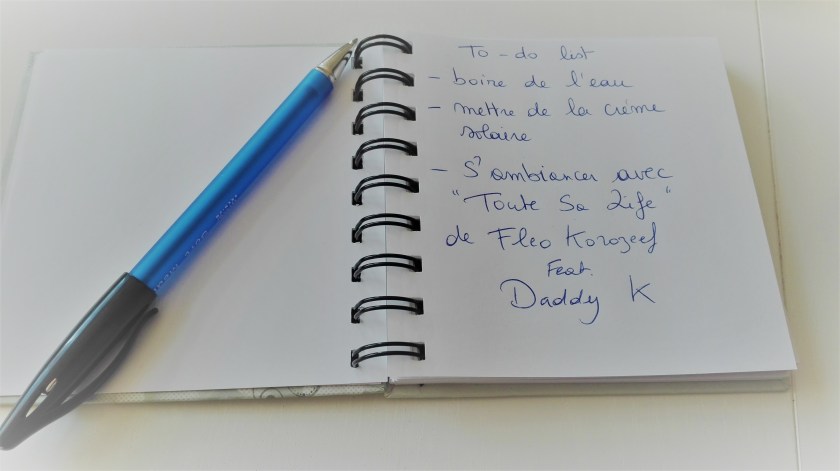 To-do list
- boire de l'eau
- mettre de la crème
solaire
- S'ambiancer avec
"Toute Sa Life"
de Fleo Korozeef
Feat.
Daddy K